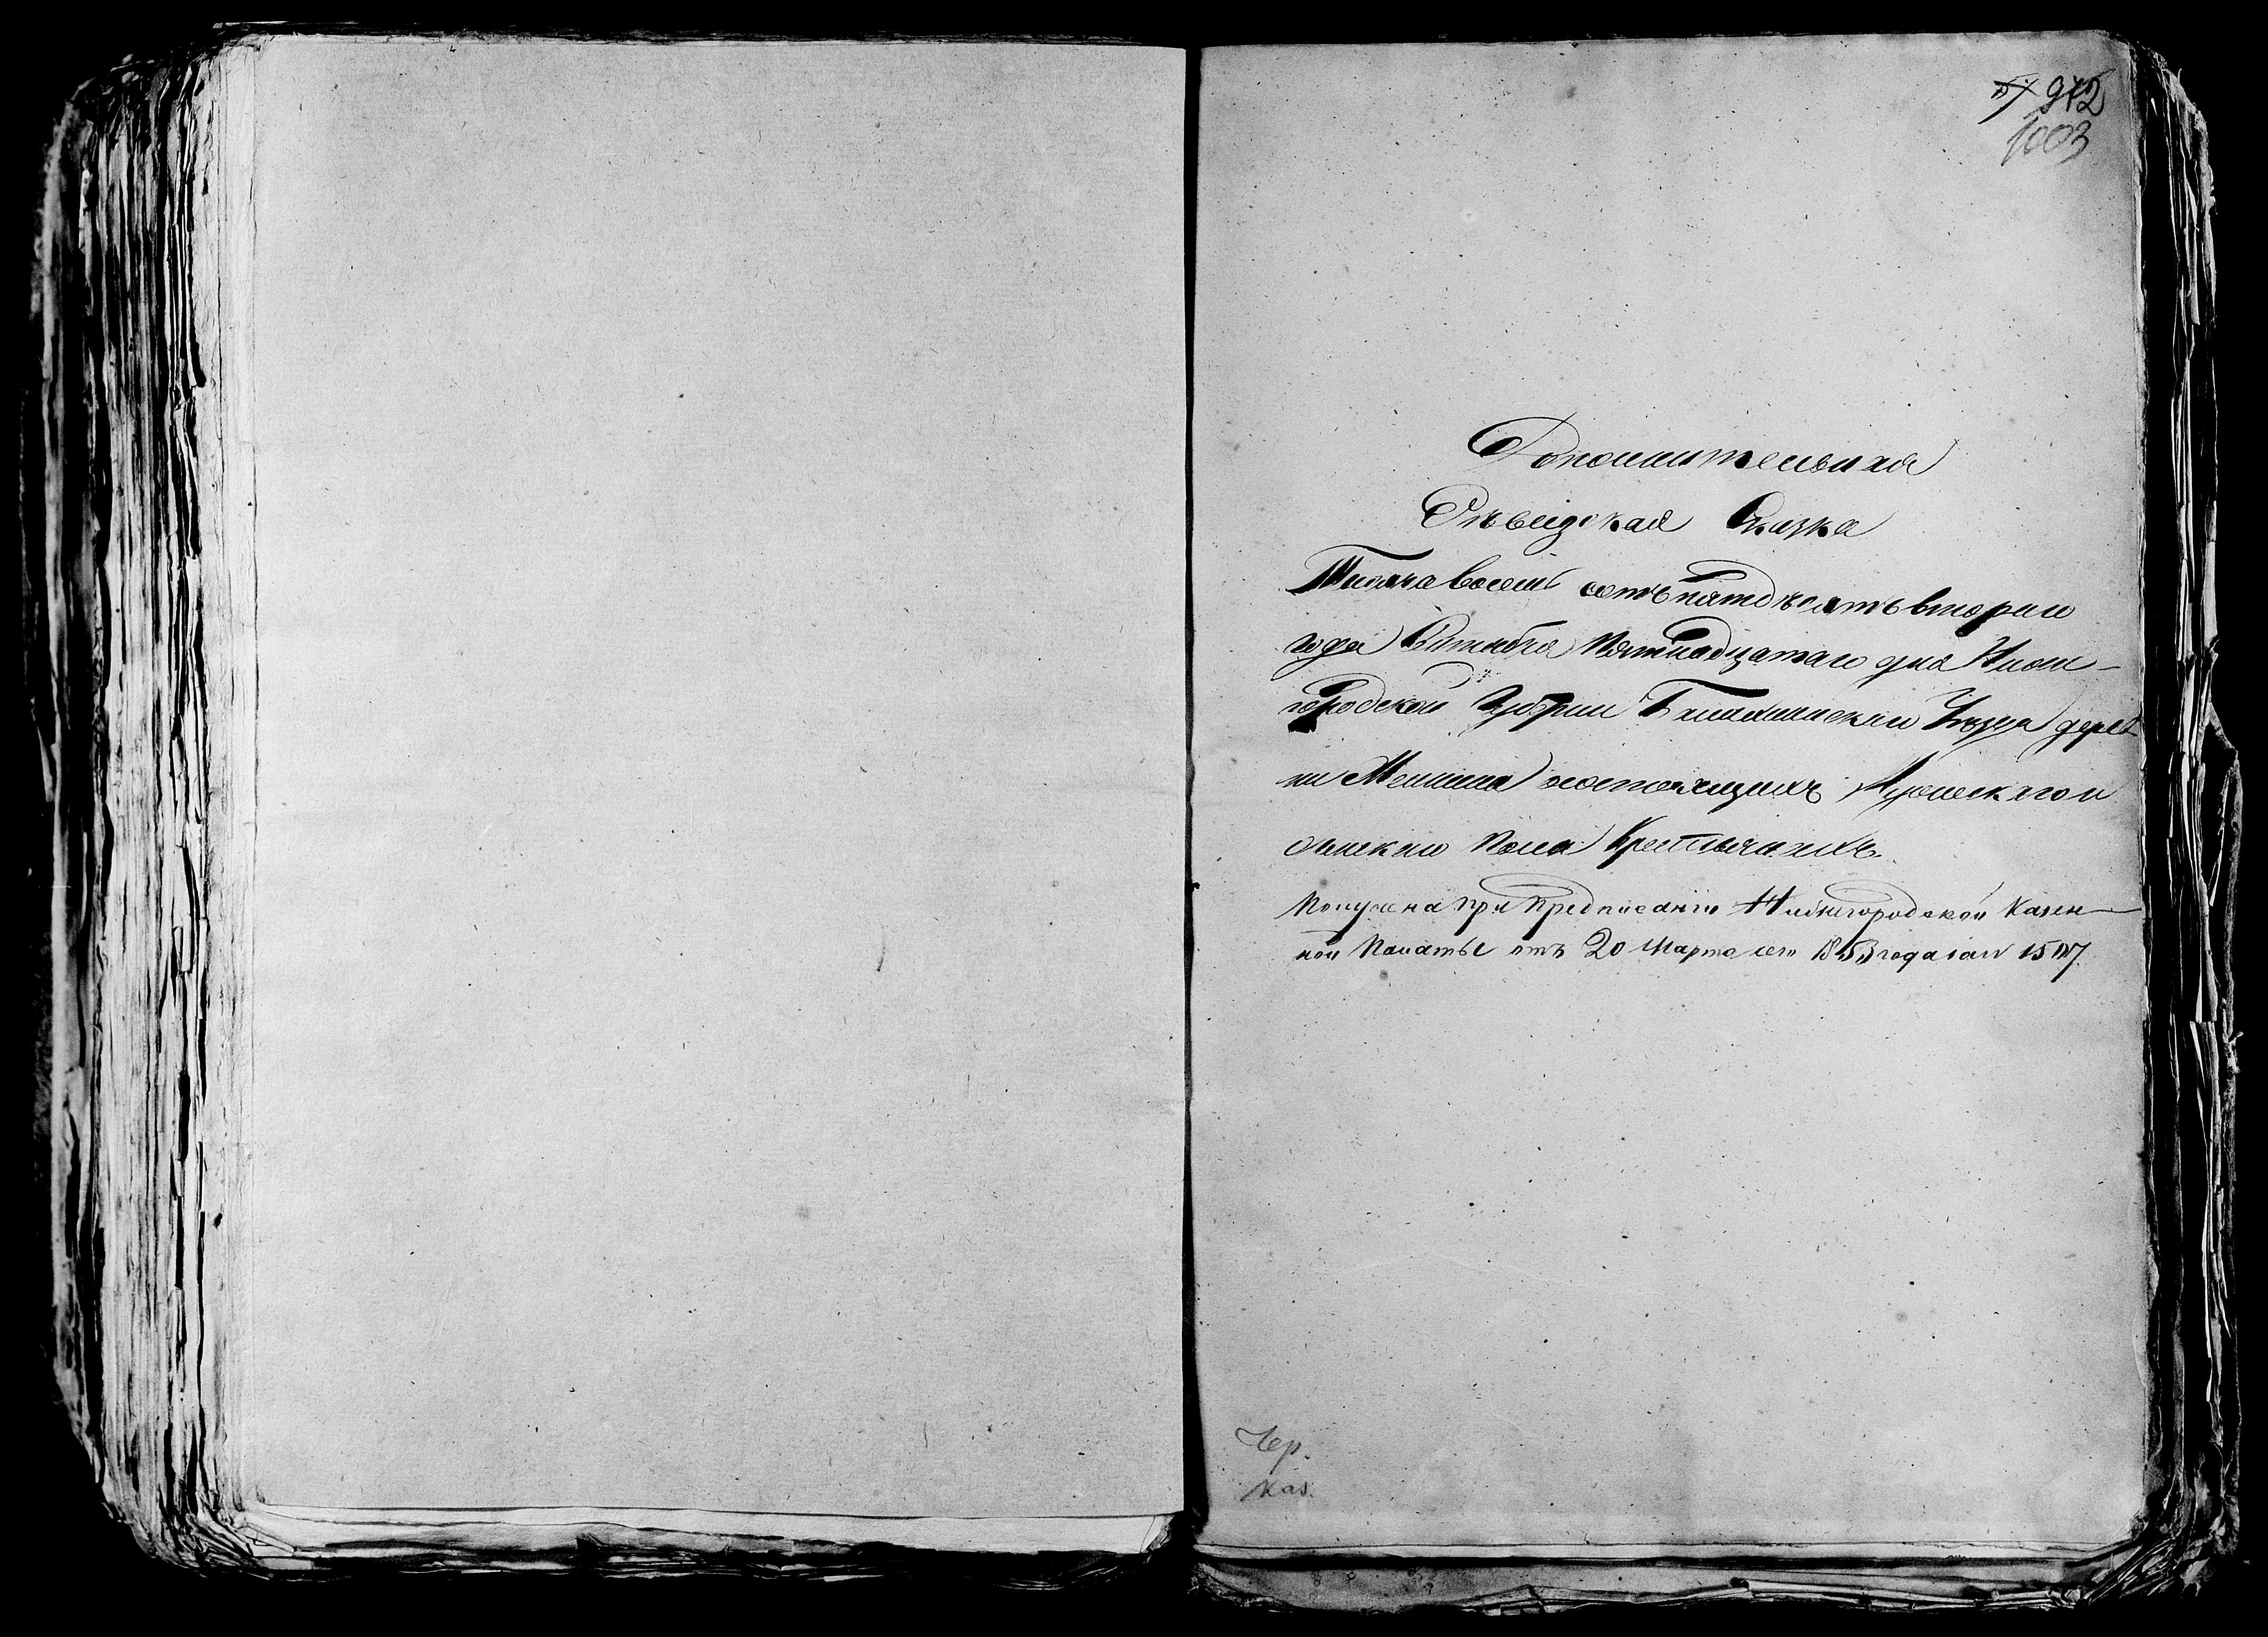 972
1003
Дополнительная
Ревизская Сказка
Тысяча восемь сотъ пятдесятъ втораго
года Октября Пятнадцатаго дня Ниже-
городской Губерніи Балахнинскаго Уезда дерев
ни состоящихъ Мужескаго и
женскаго пола Крестьянахъ.
Получена при предписаніи Нижегородской Казен-
ной Палаты отъ 20 Марта сего 1853 года за №
Чер.
каз.